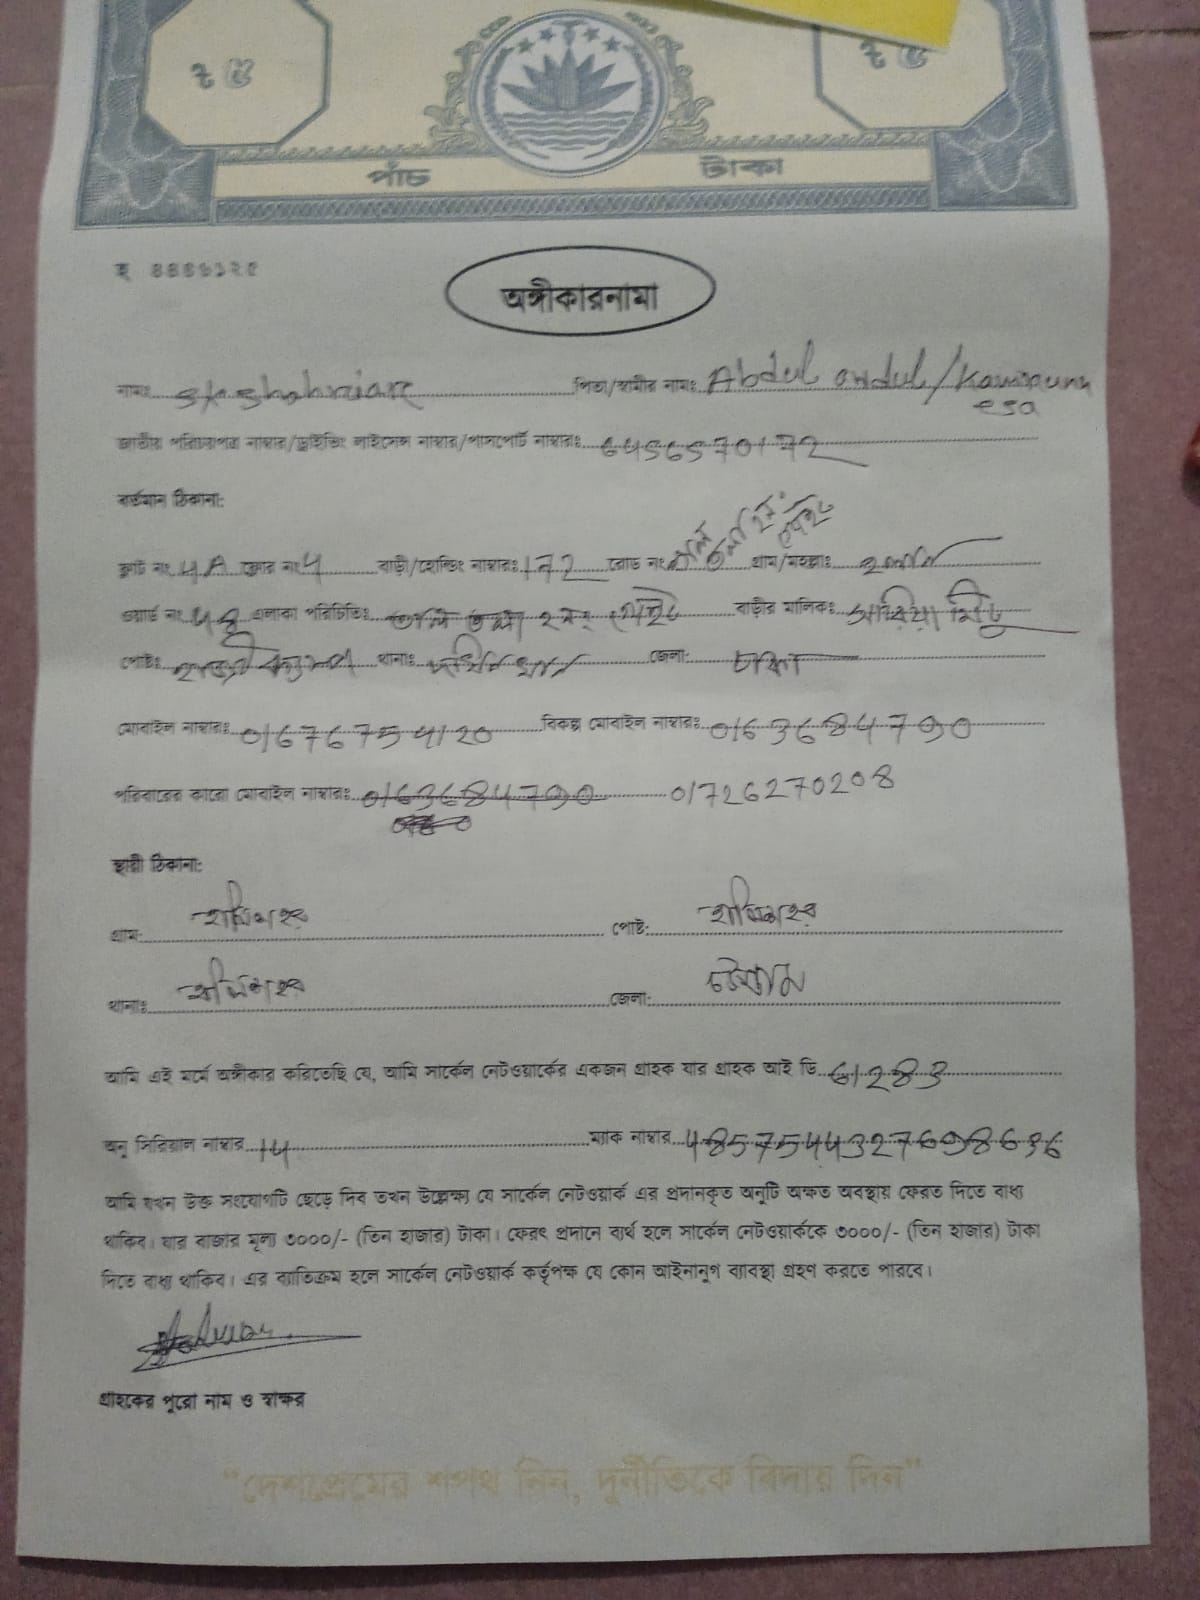 ৳ ৫ ৳ ৫
পাঁচ টাকা
হ ৪৪৪৬১২৫
অঙ্গীকারনামা
নামঃ পিতা/স্বামীর নামঃ Abdul
জাতীয় পরিচয়পত্র নাম্বার/ড্রাইভিং লাইসেন্স নাম্বার/পাসপোর্ট নাম্বারঃ 6456570172
বর্তমান ঠিকানা:
ফ্লাট নং 4A ফ্লোর নং 4 বাড়ী/হোল্ডিং নাম্বারঃ 172 রোড নং গ্রাম/মহল্লাঃ
ওয়ার্ড নং এলাকা পরিচিতিঃ বাড়ীর মালিকঃ
পোষ্টঃ থানাঃ জেলা: ঢাকা
মোবাইল নাম্বারঃ 01676754120 বিকল্প মোবাইল নাম্বারঃ 0163684790
পরিবারের কারো মোবাইল নাম্বারঃ 01726270208
স্থায়ী ঠিকানা:
গ্রাম: হালিশহর পোষ্ট: হালিশহর
থানাঃ হালিশহর জেলা: চট্টগ্রাম
আমি এই মর্মে অঙ্গীকার করিতেছি যে, আমি সার্কেল নেটওয়ার্কের একজন গ্রাহক যার গ্রাহক আই ডি 61283
অনু সিরিয়াল নাম্বার 14 ম্যাক নাম্বার 4857544327698636
আমি যখন উক্ত সংযোগটি ছেড়ে দিব তখন উল্লেক্ষ্য যে সার্কেল নেটওয়ার্ক এর প্রদানকৃত অনুটি অক্ষত অবস্থায় ফেরত দিতে বাধ্য
থাকিব। যার বাজার মূল্য ৩০০০/- (তিন হাজার) টাকা। ফেরৎ প্রদানে ব্যর্থ হলে সার্কেল নেটওয়ার্ককে ৩০০০/- (তিন হাজার) টাকা
দিতে বাধ্য থাকিব। এর ব্যাতিক্রম হলে সার্কেল নেটওয়ার্ক কর্তৃপক্ষ যে কোন আইনানুগ ব্যাবস্থা গ্রহণ করতে পারবে।
গ্রাহকের পুরো নাম ও স্বাক্ষর
"দেশপ্রেমের শপথ নিন, দুর্নীতিকে বিদায় দিন"